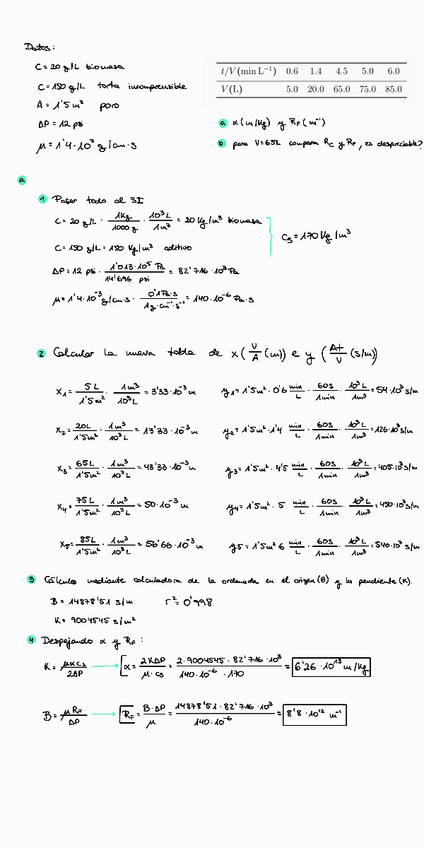 Datos:
C = 20 g/L biomasa
C = 150 g/L torta incompresible
A = 1'5 m² poro
ΔP = 12 psi
μ = 1'4·10⁻³ g/cm·s
t/V (min L⁻¹) 0.6 1.4 4.5 5.0 6.0
V (L) 5.0 20.0 65.0 75.0 85.0
a α (m/kg) y R_F (m⁻¹)
b para V=65L compara R_C y R_F, es despreciable?
a
1 Pasar todo al SI
C = 20 g/L · 1Kg/1000 g · 10³L/1m³ = 20 Kg/m³ biomasa
C = 150 g/L = 150 Kg/m³ aditivo
C_S = 170 Kg/m³
ΔP = 12 psi · 1'013·10⁵ Pa/14'696 psi = 82'716·10³ Pa
μ = 1'4·10⁻³ g/cm·s · 0'1 Pa·s/1g·cm⁻¹·s⁻¹ = 140·10⁻⁶ Pa·s
2 Calcular la nueva tabla de x (V/A (m)) e y (At/V (s/m))
x₁ = 5L/1'5m² · 1m³/10³L = 3'33·10⁻³ m y₁ = 1'5m² · 0'6 min/L · 60s/1min · 10³L/1m³ = 54·10³ s/m
x₂ = 20L/1'5m² · 1m³/10³L = 13'33·10⁻³ m y₂ = 1'5m² · 1'4 min/L · 60s/1min · 10³L/1m³ = 126·10³ s/m
x₃ = 65L/1'5m² · 1m³/10³L = 43'33·10⁻³ m y₃ = 1'5m² · 4'5 min/L · 60s/1min · 10³L/1m³ = 405·10³ s/m
x₄ = 75L/1'5m² · 1m³/10³L = 50·10⁻³ m y₄ = 1'5m² · 5 min/L · 60s/1min · 10³L/1m³ = 450·10³ s/m
x₅ = 85L/1'5m² · 1m³/10³L = 56'66·10⁻³ m y₅ = 1'5m² 6 min/L · 60s/1min · 10³L/1m³ = 540·10³ s/m
3 Cálculo mediante calculadora de la ordenada en el origen (B) y la pendiente (K).
B = 14878'51 s/m r² = 0'998
K = 9004545 s/m²
4 Despejando α y R_F:
K = μαC_S/2ΔP → α = 2KΔP/μ·C_S = 2·9004545·82'716·10³/140·10⁻⁶·170 = 6'26·10¹³ m/kg
B = μR_F/ΔP → R_F = B·ΔP/μ = 14878'51·82'716·10³/140·10⁻⁶ = 8'8·10¹² m⁻¹